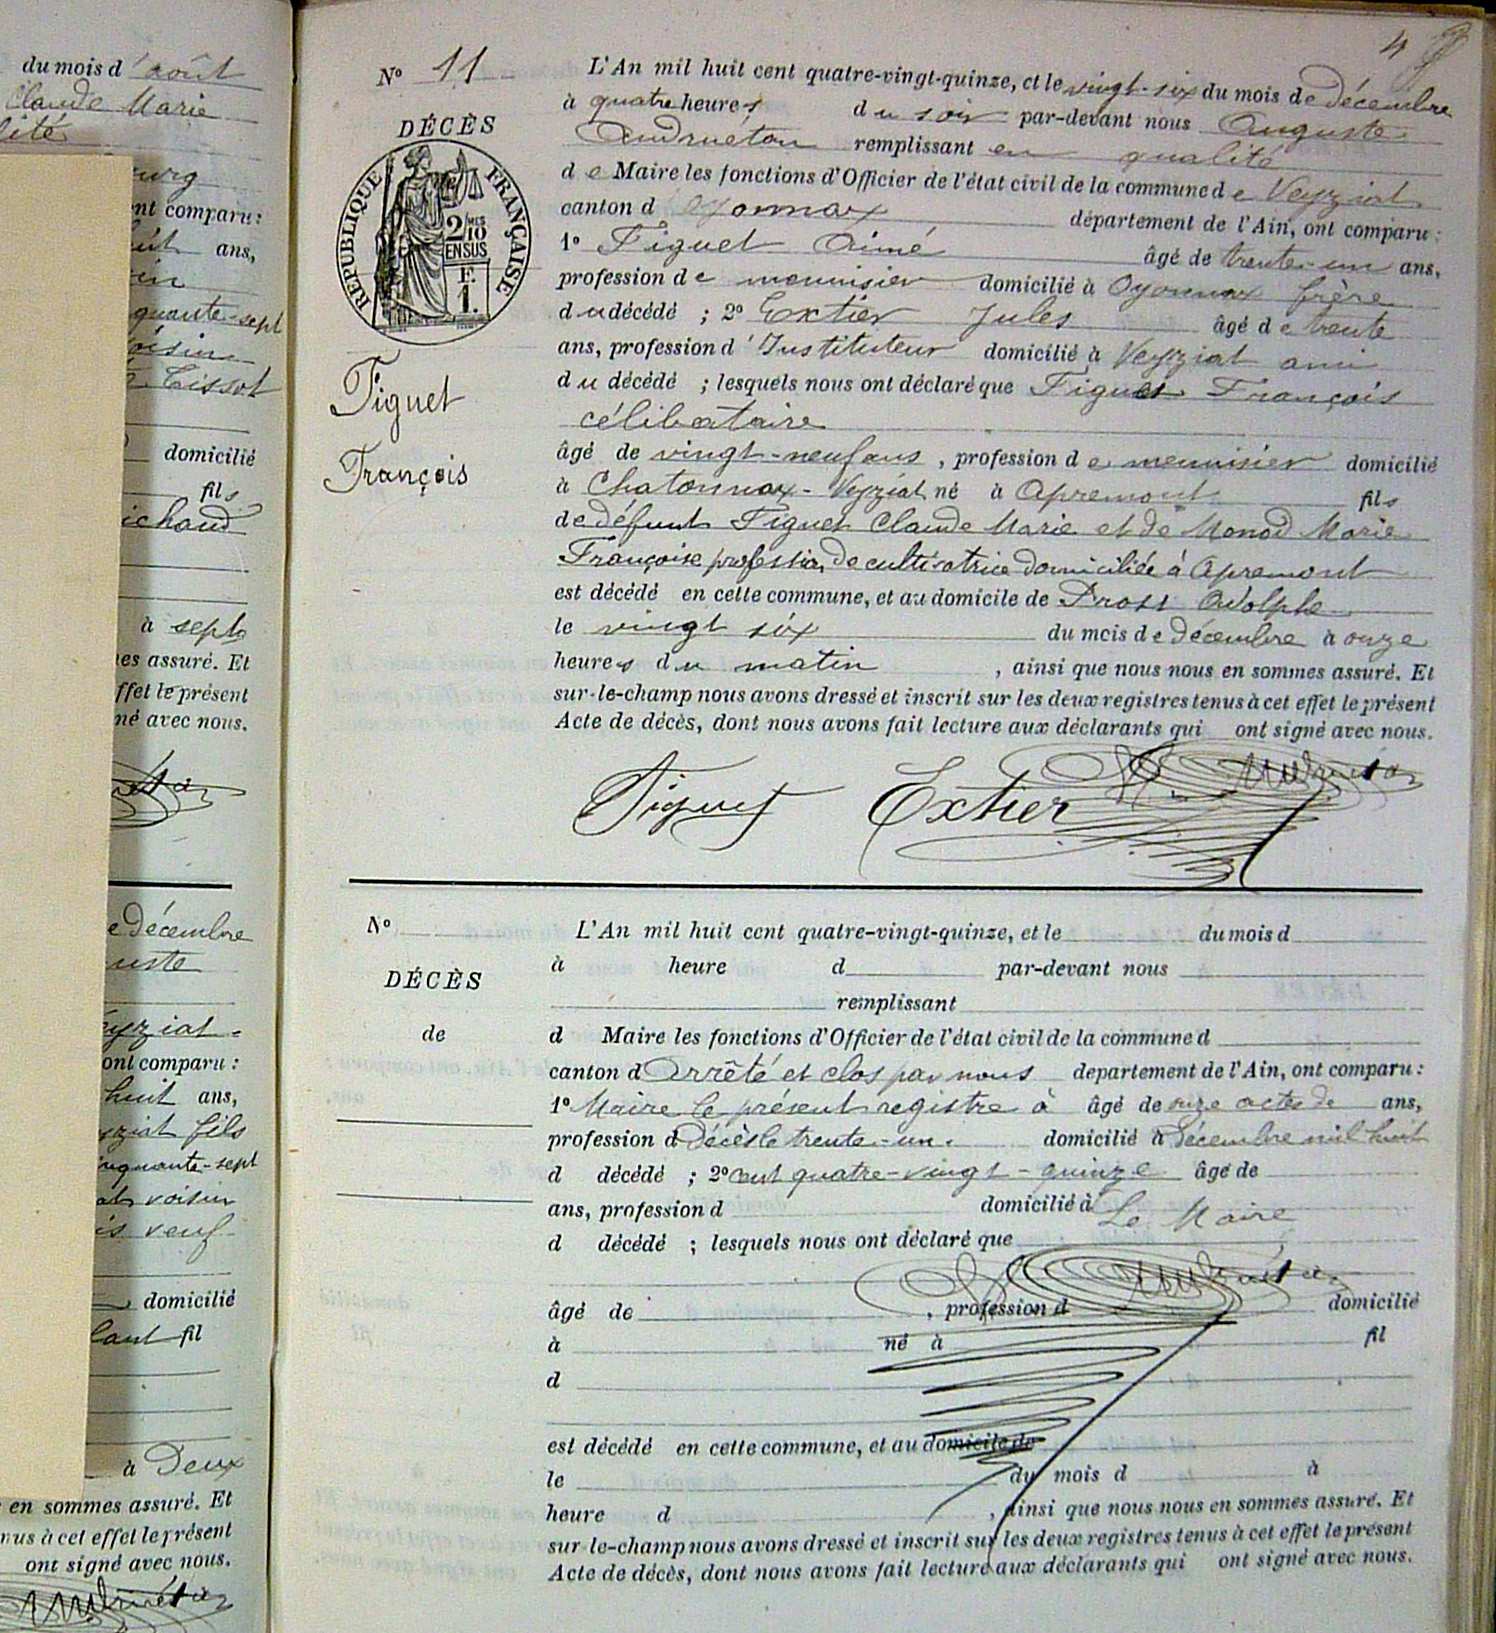 du mois d'août
Claude Marie
lité
ourg
ont comparu :
ans,
quante-sept
voisin
Tissot
domicilié
fils
ichaud
à sept
es assuré. Et
ffet le présent
né avec nous.
e Décembre
uste
eyziat
ont comparu :
huit ans,
yziat fils
inquante-sept
voisin
is veuf
domicilié
fil
à Deux
en sommes assuré. Et
nus à cet effet le présent
ont signé avec nous.
4
N° 11
DÉCÈS
RÉPUBLIQUE FRANÇAISE
2/10
EN SUS
F.
1.
Figuet
François
L'An mil huit cent quatre-vingt-quinze, et le vingt-six du mois de décembre
à quatre heures du soir par-devant nous Auguste
Andruetan remplissant en qualité
de Maire les fonctions d'Officier de l'état civil de la commune de Veyziat
canton d'Oyonnax département de l'Ain, ont comparu :
1° Figuet Aimé âgé de trente-un ans,
profession de menuisier domicilié à Oyonnax frère
du décédé ; 2° Extier Jules âgé de trente
ans, profession d'Instituteur domicilié à Veyziat ami
du décédé ; lesquels nous ont déclaré que Figuet François
célibataire
âgé de vingt-neuf ans, profession de menuisier domicilié
à Chatonnax-Veyziat né à Apremont fils
de défunt Figuet Claude Marie et de Monod Marie
Françoise profession de cultivatrice domiciliée à Apremont
est décédé en cette commune, et au domicile de Prost Adolphe
le vingt six du mois de décembre à onze
heures du matin , ainsi que nous nous en sommes assuré. Et
sur-le-champ nous avons dressé et inscrit sur les deux registres tenus à cet effet le présent
Acte de décès, dont nous avons fait lecture aux déclarants qui ont signé avec nous.
Figuet Extier
N°
DÉCÈS
de
L'An mil huit cent quatre-vingt-quinze, et le du mois d
à heure d par-devant nous
remplissant
d Maire les fonctions d'Officier de l'état civil de la commune d
canton d Arrêté et clos par nous département de l'Ain, ont comparu :
1° Maire le présent registre à âgé de onze actes de ans,
profession d Décès le trente-un domicilié à décembre mil huit
d décédé ; 2° cent quatre-vingt-quinze âgé de
ans, profession d domicilié à Le Maire
d décédé ; lesquels nous ont déclaré que
âgé de , profession d domicilié
à né à fil
d
est décédé en cette commune, et au domicile de
le du mois d à
heure d , ainsi que nous nous en sommes assuré. Et
sur-le-champ nous avons dressé et inscrit sur les deux registres tenus à cet effet le présent
Acte de décès, dont nous avons fait lecture aux déclarants qui ont signé avec nous.